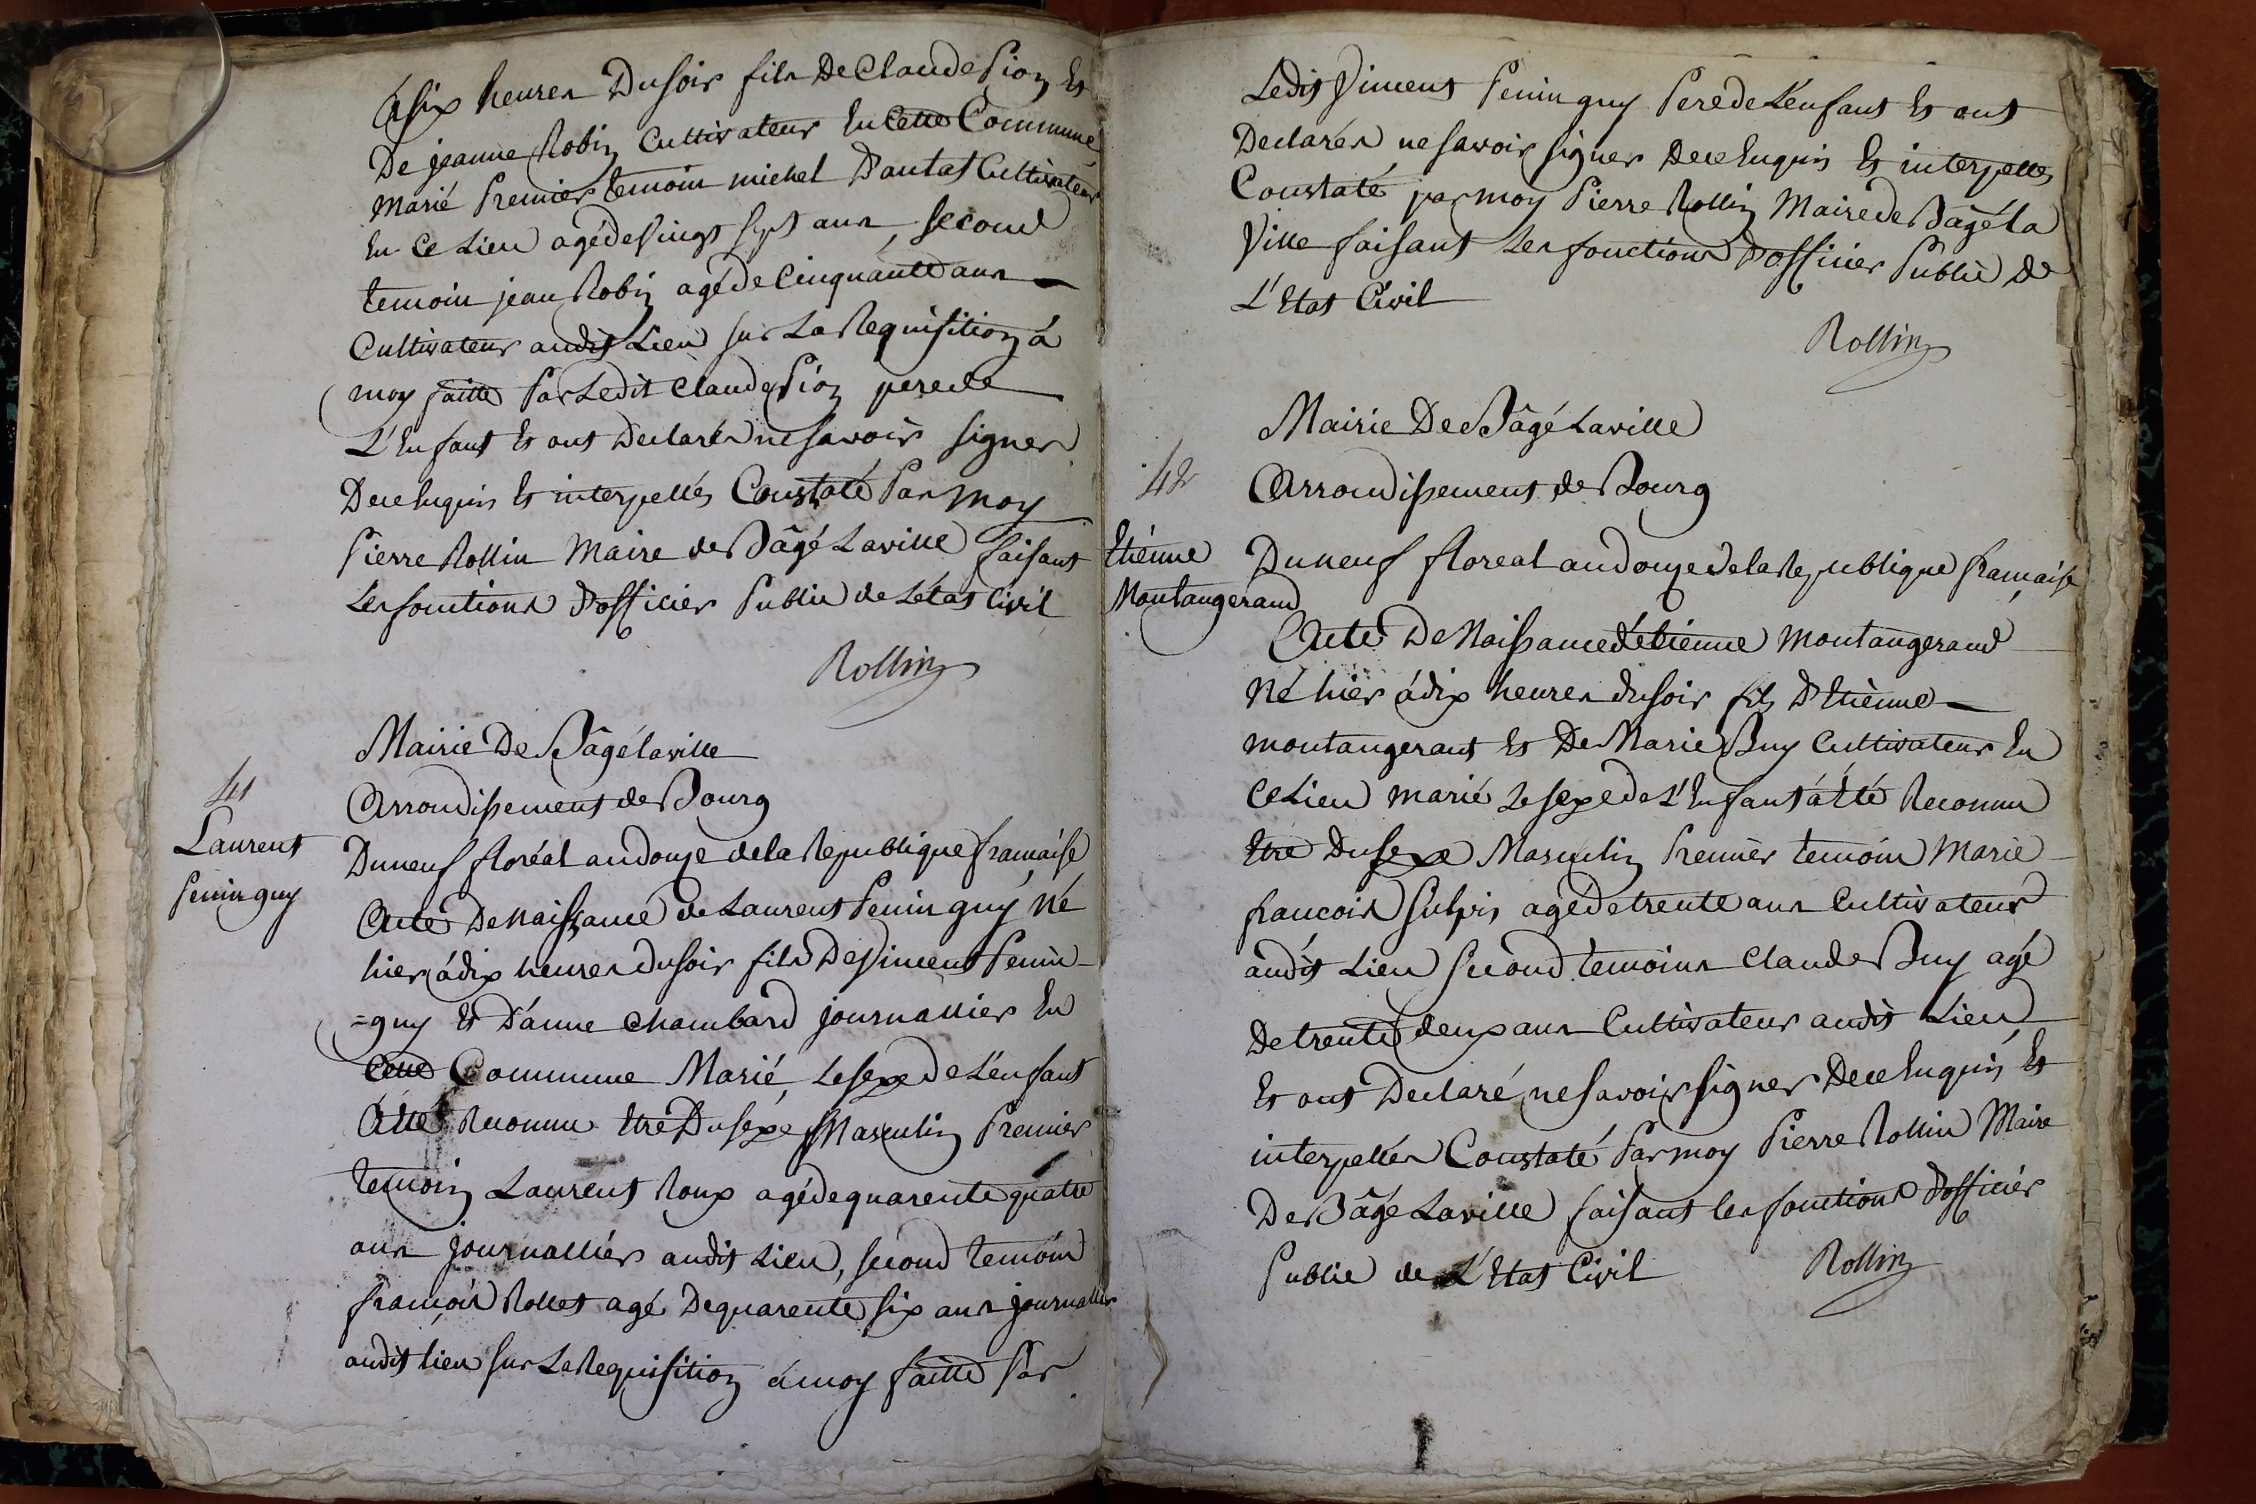 à six heures Du soir fils De Claude Pion Et
De jeanne Robin Cultivateur En Cette Commune
Marié Premier temoin michel Dantat Cultivateur
En Ce Lieu agé de vingt sept ans, second
temoin jean Robin agé de Cinquante ans
Cultivateur audit Lieu sur La Requisition à
moy faitte Par Ledit Claude Pion pere de
L'Enfant Et ont Declarés ne savoir signer
De ce Enquis Et interpellés Constaté Par moy
Pierre Rollin Maire de Bâgé Laville faisant
Les fonctions D'officier Public de L'état Civil
Rollin
Mairie De Bâgé laville
41
Arrondissement de Bourg
Laurent
Peninguy
Du neuf floréal an douze de la Republique francaise
Acte De naissance de Laurent Peninguy Né
hier à dix heures du soir fils De Vincent Penin-
=guy Et D'anne Chambard journallier En
Cette Commune Marié, Le sexe De L'enfant
à Eté Reconnu Etre Du sexe Masculin Premier
temoin Laurent Roux agé de quarente quatre
ans journallier audit Lieu, second temoin
francois Rollet agé De quarente six ans journallier
audit lieu sur La Requisition à moy faitte Par
Ledit Vincent Peninguy Pere de L'enfant Et ont
Declarés ne savoir signer De ce Enquis Et interpellés
Constaté par moy Pierre Rollin Maire de Bâgé la
Ville faisant Les fonctions D'officier Public De
L'Etat Civil
Rollin
Mairie De Bâgé Laville
42
Arrondissement de Bourg
Etienne
Montangerand
Du neuf floreal an douze de la Republique francaise
Acte De Naissance d'étienne Montangerand
Né hier à dix heures du soir fils D'Etienne
montangerant Et De Marie Buy Cultivateur En
Ce Lieu marié Le sexe de L'Enfant à Eté Reconnu
Etre Du sexe Masculin Premier temoin Marie
francois Sulpis agé de trente ans Cultivateur
audit Lieu second temoins Claude Buy agé
De trente deux ans Cultivateur audit Lieu
Et ont Declaré ne savoir signer De ce Enquis Et
interpellés Constaté Par moy Pierre Rollin Maire
De Bâgé Laville faisant les fonctions D'officier
Public de L'Etat Civil
Rollin